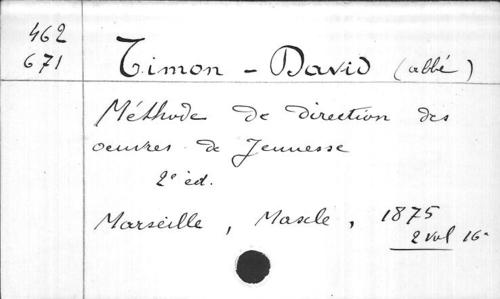 462
671
Timon - David (abbé)
Méthode de direction des
oeuvres de Jeunesse
2e éd.
Marseille, Mascle, 1875
2 vol 16°